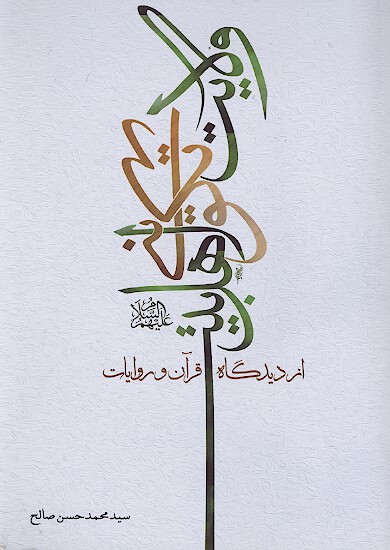 ولایت
تکوینی
اهل‌بیت
علیهم السلام
از دیدگاه قرآن و روایات
سید محمد حسن صالح